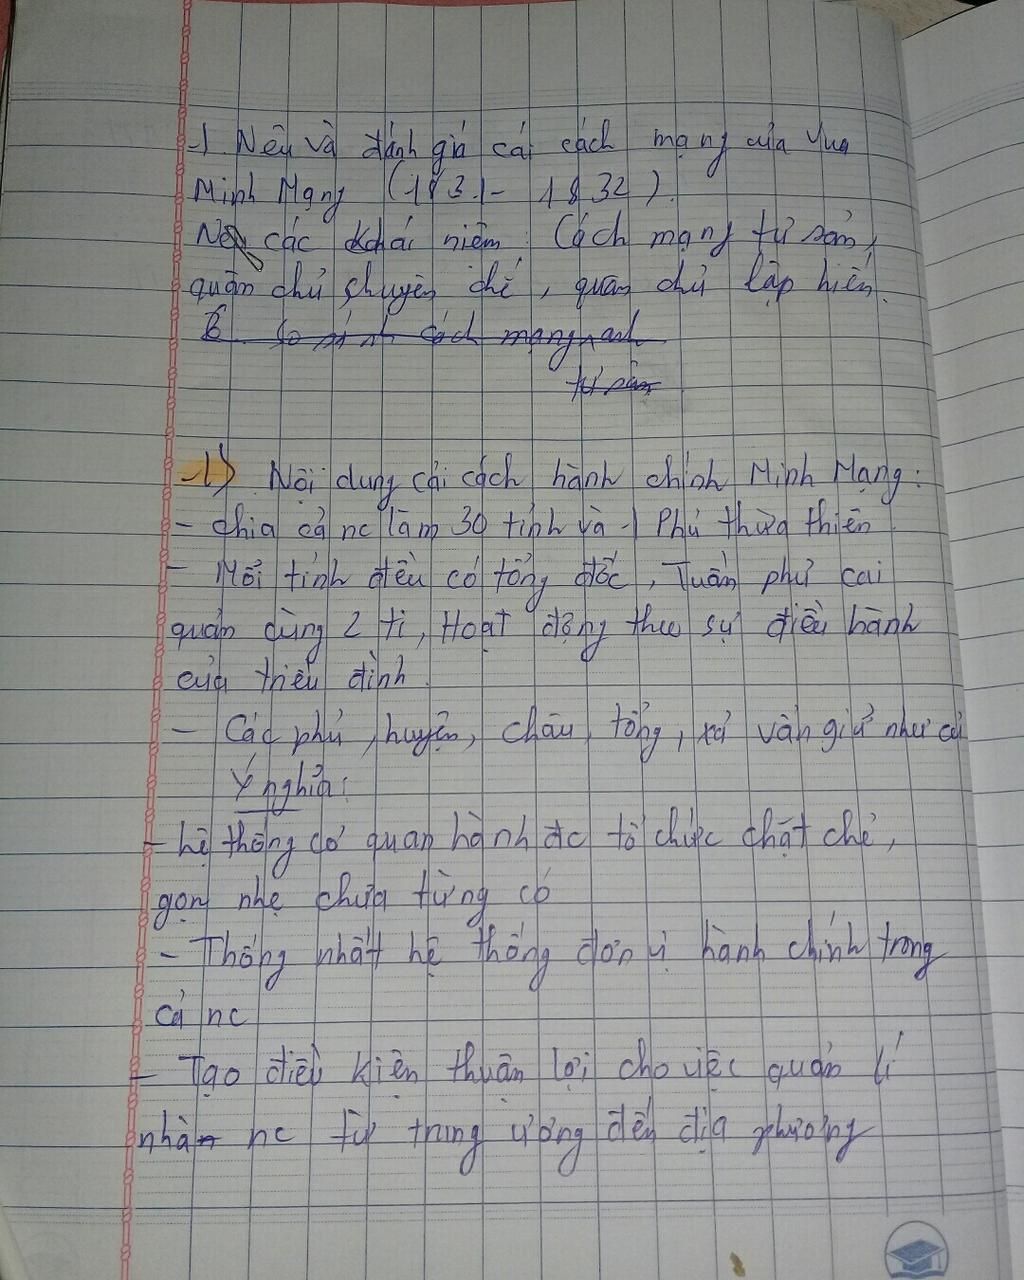 1. Nêu và đánh giá cải cách mạng của Vua
Minh Mạng (1831 - 1832).
Nêu các khái niệm: Cách mạng tư sản,
quân chủ chuyên chế, quân chủ lập hiến.
So sánh cách mạng anh
tư sản
1) Nội dung cải cách hành chính Minh Mạng:
- chia cả nc làm 30 tỉnh và 1 Phủ thừa thiên.
- Mỗi tỉnh đều có tổng đốc, Tuần phủ cai
quản cùng 2 ti, Hoạt động theo sự điều hành
của triều đình.
- Các phủ, huyện, châu, tổng, xã vẫn giữ như cũ
Ý nghĩa:
- hệ thống cơ quan hành đc tổ chức chặt chẽ,
gọn nhẹ chưa từng có
- Thống nhất hệ thống đơn vị hành chính trong
cả nc
- Tạo điều kiện thuận lợi cho việc quản lí
nhà nc từ trung ương đến địa phương